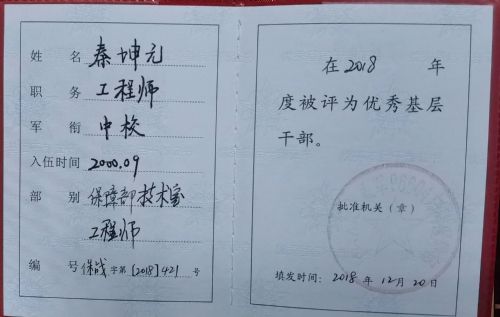 姓 名 秦坤元
职 务 工程师
军 衔 中校
入伍时间 2000.09
部 别 保障部技术室
工程师
编 号 保战 字第 [2018] 421 号
在 2018 年
度被评为优秀基层
干部。
批准机关（章）
填发时间： 2018 年 12 月 20 日